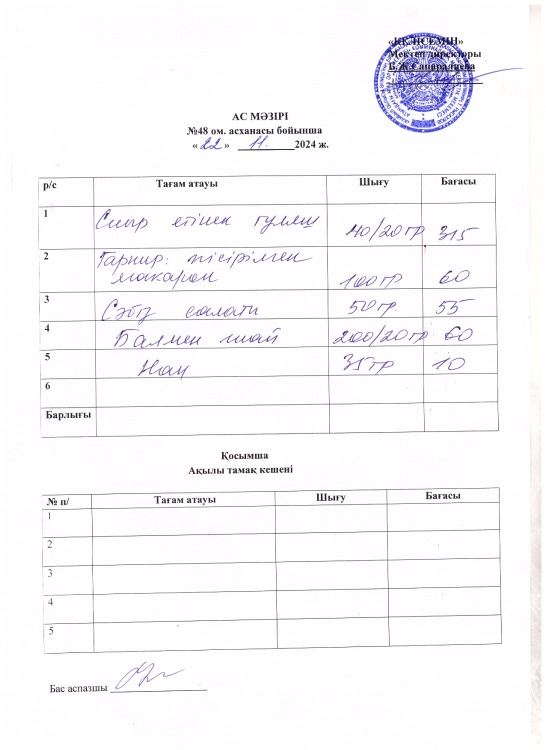 «КЕЛІСЕМІН»
Мектеп директоры
АС МӘЗІРІ
№48 ом. асханасы бойынша
« 22 » 11. 2024 ж.
р/с Тағам атауы Шығу Бағасы
1 Сиыр етінен гуляш 40/20 гр 315
2 Гарнир: пісірілген
макарон 100 гр 60
3 Сәбіз салаты 50 гр. 55
4 Балмен шай 200/20 гр 60
5 Нан 35 гр 10
6
Барлығы
Қосымша
Ақылы тамақ кешені
№ п/ Тағам атауы Шығу Бағасы
1
2
3
4
5
Бас аспазшы